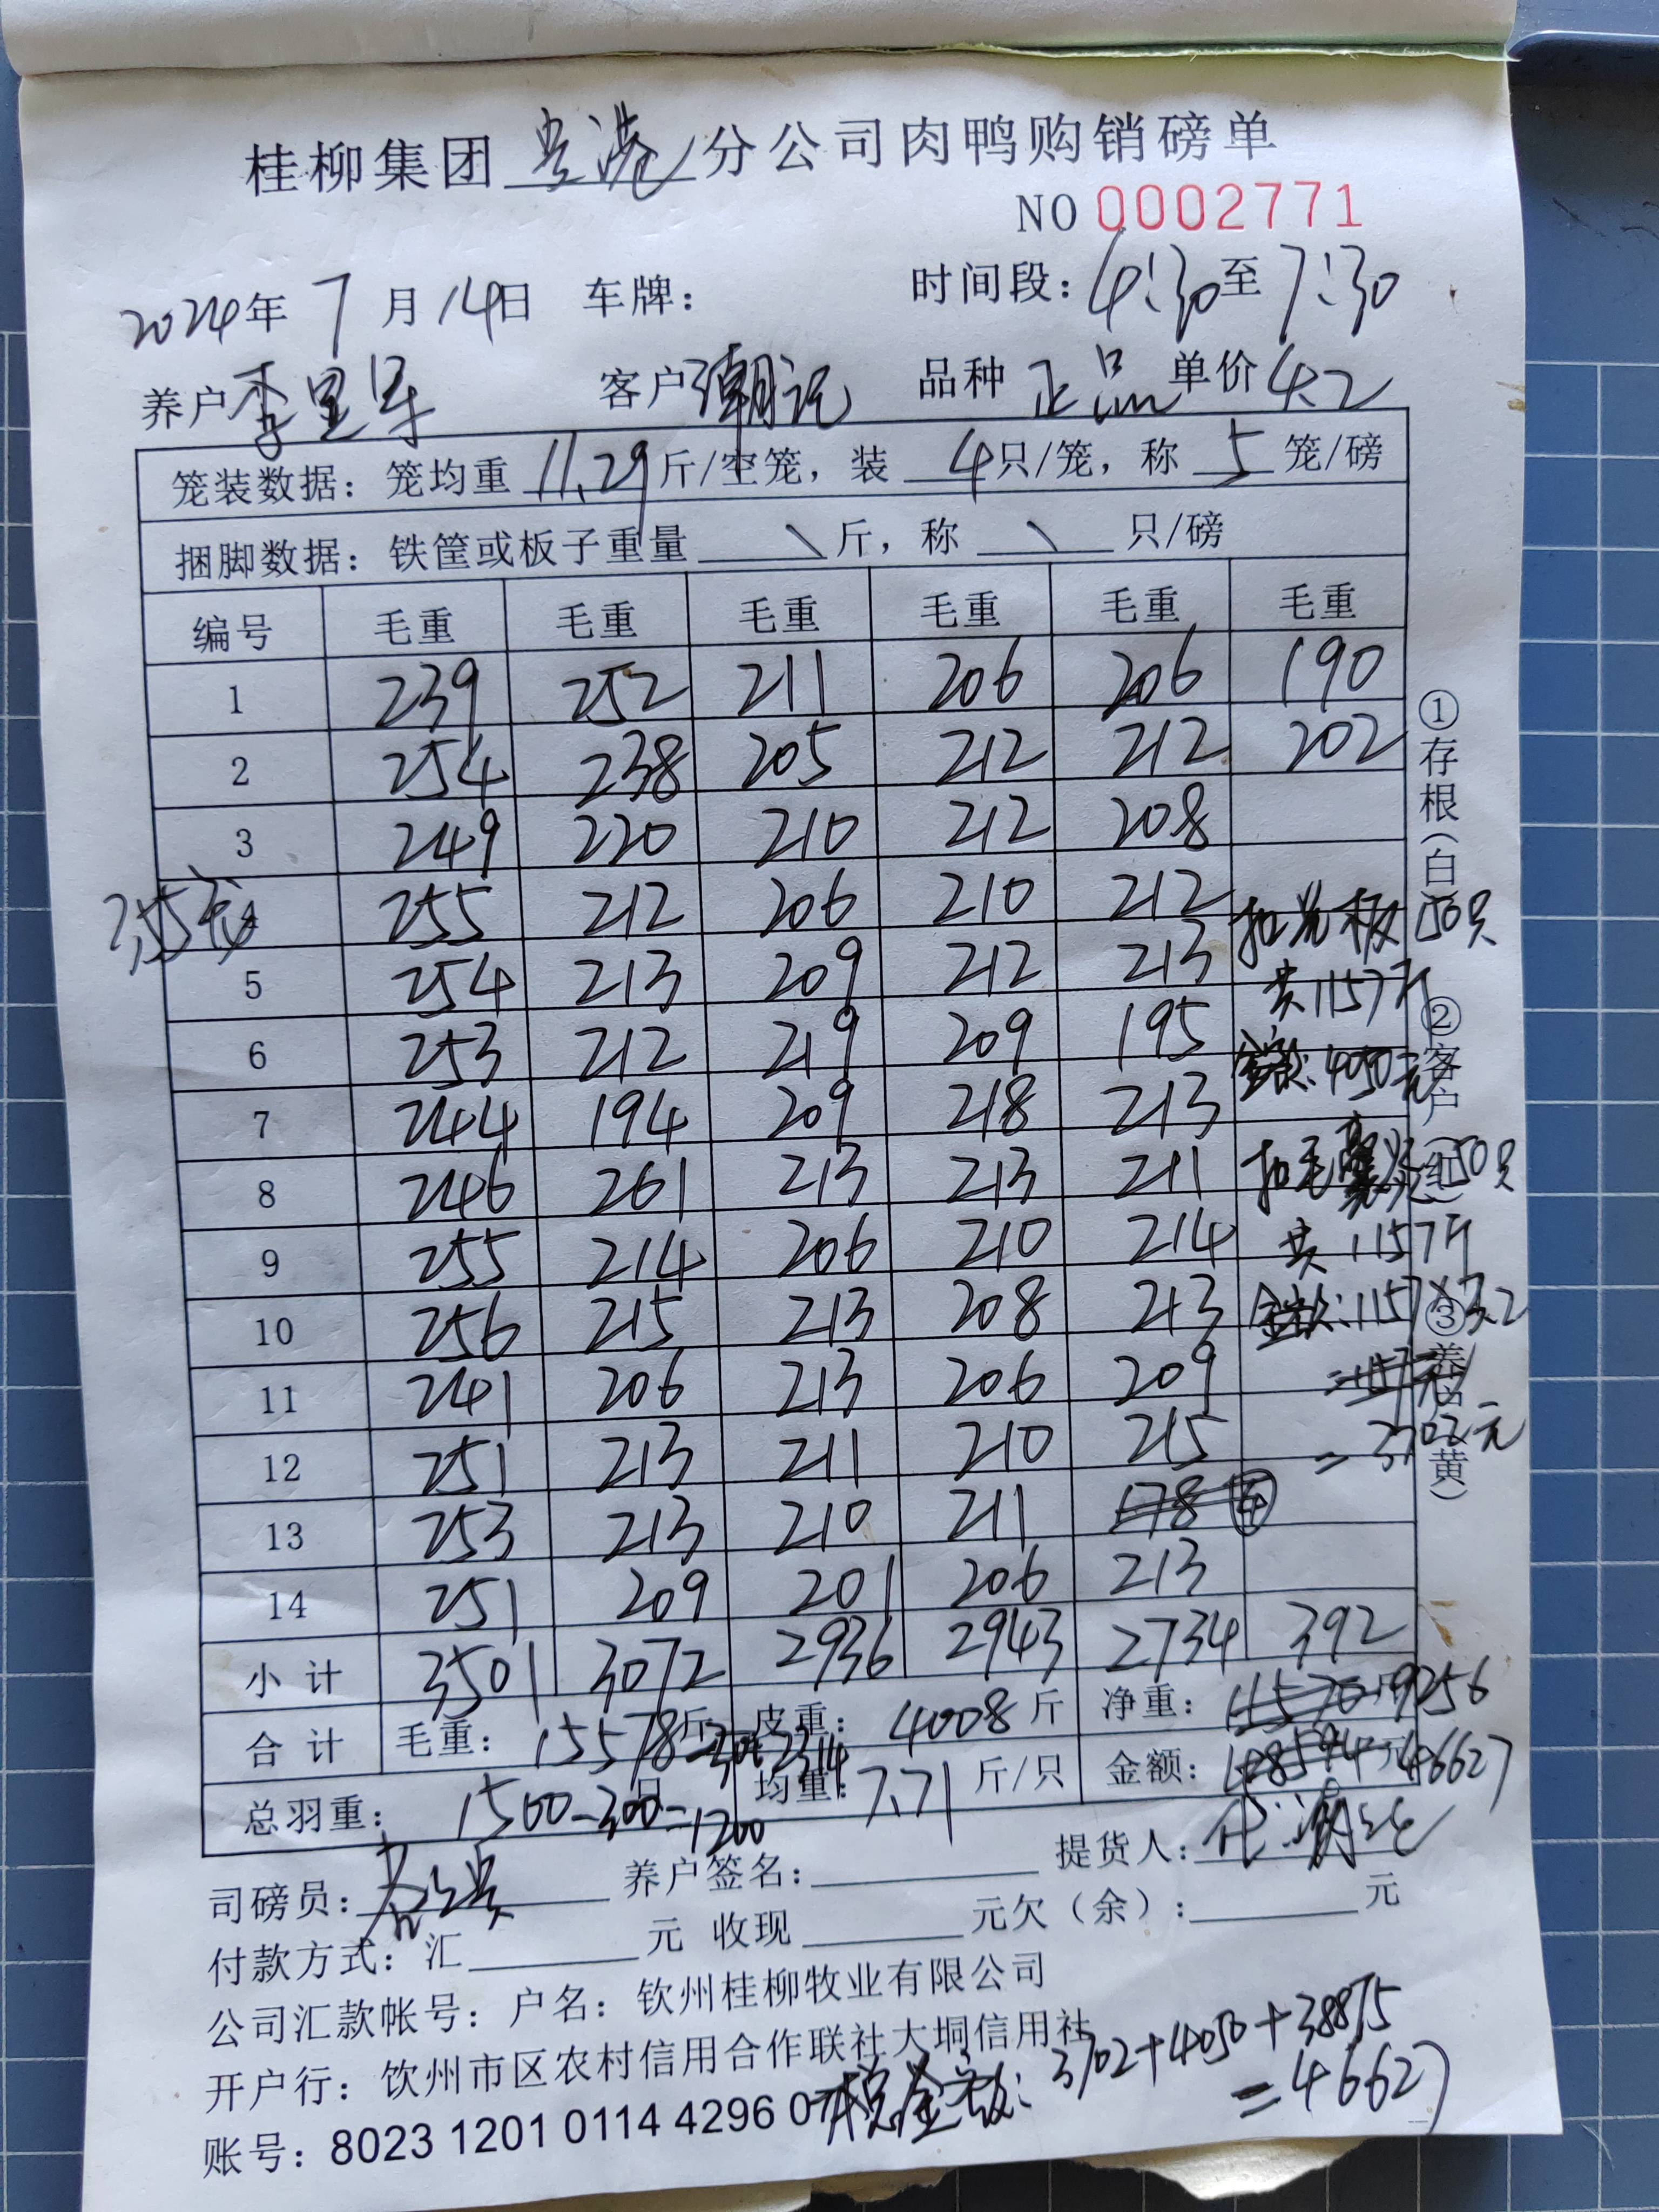 桂柳集团 贵港 分公司肉鸭购销磅单
NO 0002771
2024年 7 月 14日 车牌： 时间段：4:30至 7:30
养户 李里军 客户 潮记 品种 正品 单价 4.2
笼装数据：笼均重 11.29 斤/空笼，装 4只/笼，称 5 笼/磅
捆脚数据：铁筐或板子重量 \ 斤，称 \ 只/磅
编号 毛重 毛重 毛重 毛重 毛重 毛重
1 239 252 211 206 206 190
2 254 238 205 212 212 202
3 249 220 210 212 208
255 212 206 210 212
5 254 213 209 212 213
6 253 212 219 209 195
7 244 194 209 218 213
8 246 261 213 213 211
9 255 214 206 210 214
10 256 215 213 208 213
11 241 206 213 206 209
12 251 213 211 210 215
13 253 213 210 211 178 ④
14 251 209 201 206 213
小计 3501 3072 2936 2943 2734 392
合计 毛重：15578斤 皮重：4008斤 净重：11570 9256
总羽重：1500-300=1200 均重：7.71 斤/只 金额：48594元 46627
司磅员： 养户签名： 提货人：
付款方式：汇 元 收现 元欠（余）： 元
公司汇款帐号：户名：钦州桂柳牧业有限公司
开户行：饮州市区农村信用合作联社大垌信用社
账号：8023 1201 0114 4296 0
金额：3702+4050+38875
=46627
150只
共1157斤
金款：4050元
150只
共1157斤
金款：1157×3.2
=3702元
①存根（白
②客户（红）
③养
黄）